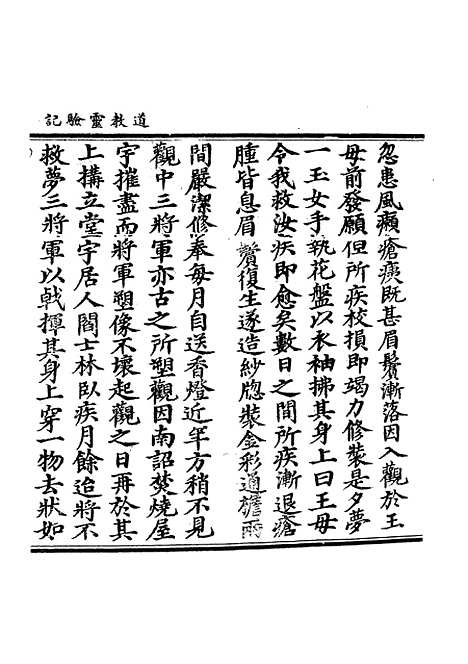 道教靈驗記
忽患風癩瘡痍既甚眉鬢漸落因入觀於王
母前發願但所疾校損即竭力修裝是夕夢
一玉女手執花盤以衣袖拂其身上曰王母
令我救汝疾即愈矣數日之間所疾漸退瘡
腫皆息眉鬢復生遂造紗牕裝金彩通檐兩
間嚴潔修奉每月自送香燈近年方稍不見
觀中三將軍亦古之所塑觀因南詔焚燒屋
宇摧盡而將軍塑像不壞起觀之日再於其
上搆立堂宇居人閻士林臥疾月餘迨將不
救夢三將軍以戟揮其身上穿一物去狀如